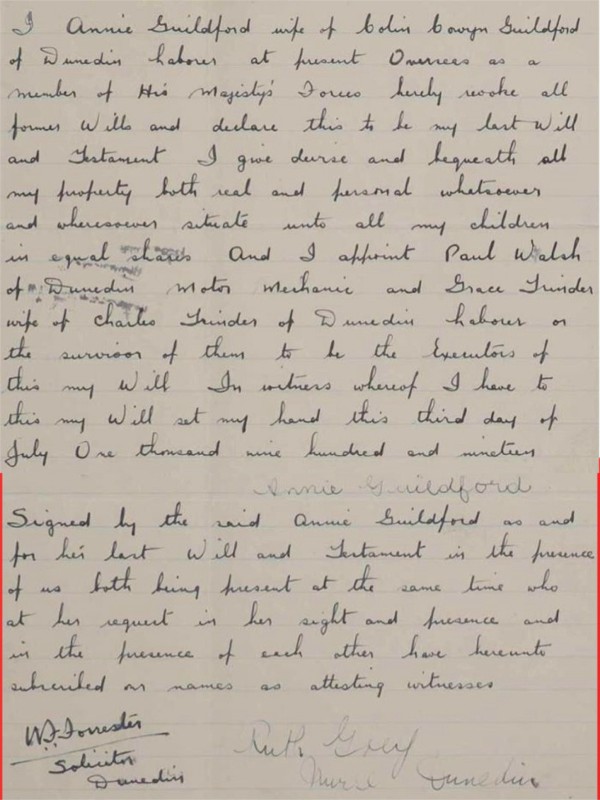 I Annie Guildford wife of Colin Cowyn Guildford
of Dunedin Laborer at present Overseas as a
member of His Majesty's Forces hereby revoke all
former Wills and declare this to be my last Will
and Testament I give devise and bequeath all
my property both real and personal whatsoever
and wheresoever situate unto all my children
in equal shares And I appoint Paul Walsh
of Dunedin Motor Mechanic and Grace Trinder
wife of Charles Trinder of Dunedin Laborer or
the survivor of them to be the Executors of
this my Will In witness whereof I have to
this my Will set my hand this third day of
July One thousand nine hundred and nineteen
Annie Guildford
Signed by the said Annie Guildford as and
for her last Will and Testament in the presence
of us both being present at the same time who
at her request in her sight and presence and
in the presence of each other have hereunto
subscribed our names as attesting witnesses
W.F. Forrester
Solicitor
Dunedin
Ruth Grey
Nurse Dunedin